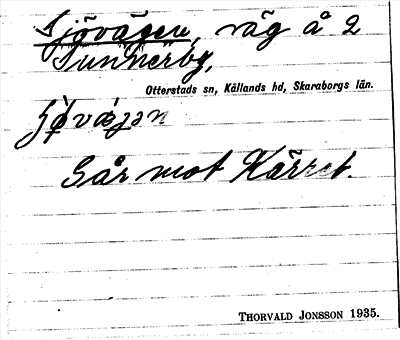 Sjövägen, väg å 2
Sunnerby,
Otterstads sn, Kållands hd, Skaraborgs län.
Går mot Kärret.
THORVALD JONSSON 1935.